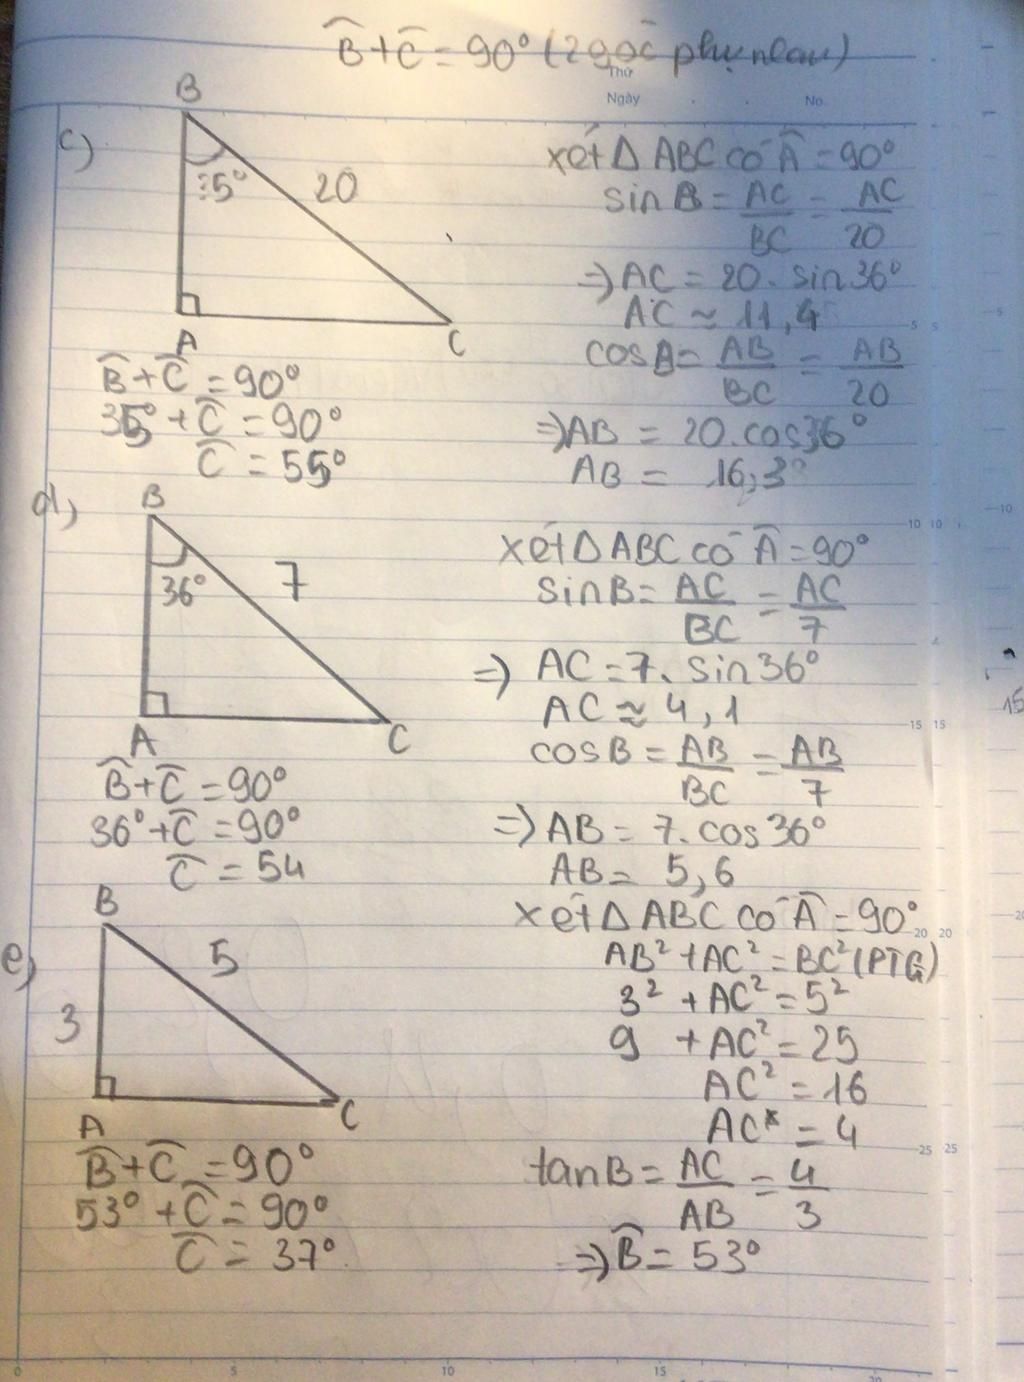 B̂ + Ĉ = 90° (2 góc phụ nhau)
Thứ
Ngày No.
c)
B
35° 20
A C
B̂ + Ĉ = 90°
35° + Ĉ = 90°
Ĉ = 55°
xét Δ ABC có Â = 90°
sin B = AC/BC = AC/20
=> AC = 20 . sin 36°
AC ≈ 11,4
cos A = AB/BC = AB/20
=> AB = 20 . cos 36°
AB = 16,3
d)
B
36° 7
A C
B̂ + Ĉ = 90°
36° + Ĉ = 90°
Ĉ = 54
xét Δ ABC có Â = 90°
sin B = AC/BC = AC/7
=> AC = 7 . sin 36°
AC ≈ 4,1
cos B = AB/BC = AB/7
=> AB = 7 . cos 36°
AB = 5,6
e)
B
3 5
A C
B̂ + Ĉ = 90°
53° + Ĉ = 90°
Ĉ = 37°
xét Δ ABC có Â = 90°
AB² + AC² = BC² (PTG)
3² + AC² = 5²
9 + AC² = 25
AC² = 16
AC = 4
tan B = AC/AB = 4/3
=> B̂ = 53°
5 5
10 10
15 15
20 20
25 25
0 5 10 15 20